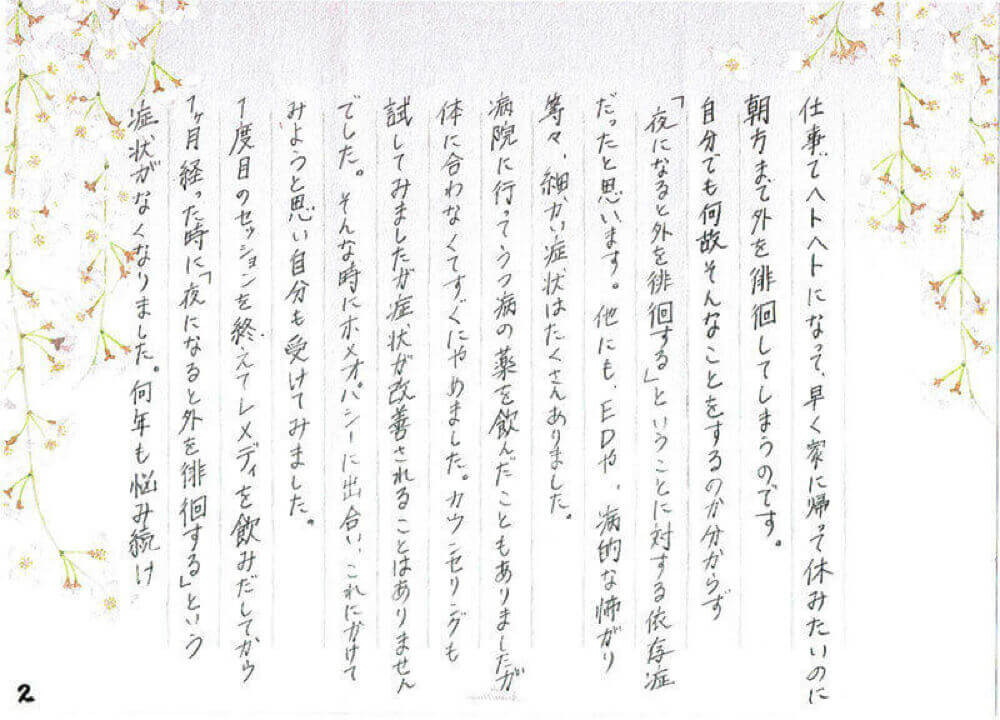 仕事でヘトヘトになって、早く家に帰って休みたいのに
朝方まで外を徘徊してしまうのです。
自分でも何故そんなことをするのか分からず
「夜になると外を徘徊する」ということに対する依存症
だったと思います。他にも、EDや、病的な怖がり
等々、細かい症状はたくさんありました。
病院に行ってうつ病の薬を飲んだこともありましたが
体に合わなくてすぐにやめました。カウンセリングも
試してみましたが症状が改善されることはありません
でした。そんな時にホメオパシーに出合い、これにかけて
みようと思い自分も受けてみました。
1度目のセッションを終えてレメディを飲みだしてから
1ヶ月経った時に「夜になると外を徘徊する」という
症状がなくなりました。何年も悩み続け
2